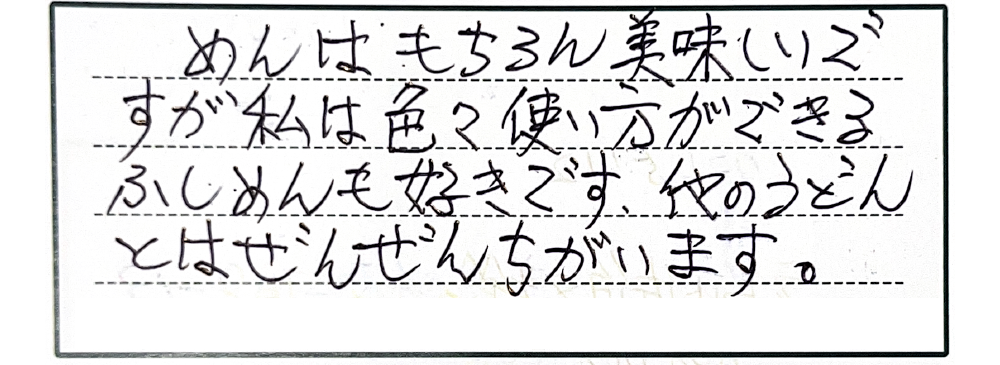 めんはもちろん美味しいで
すが私は色々使い方ができる
ふしめんも好きです、他のうどん
とはぜんぜんちがいます。